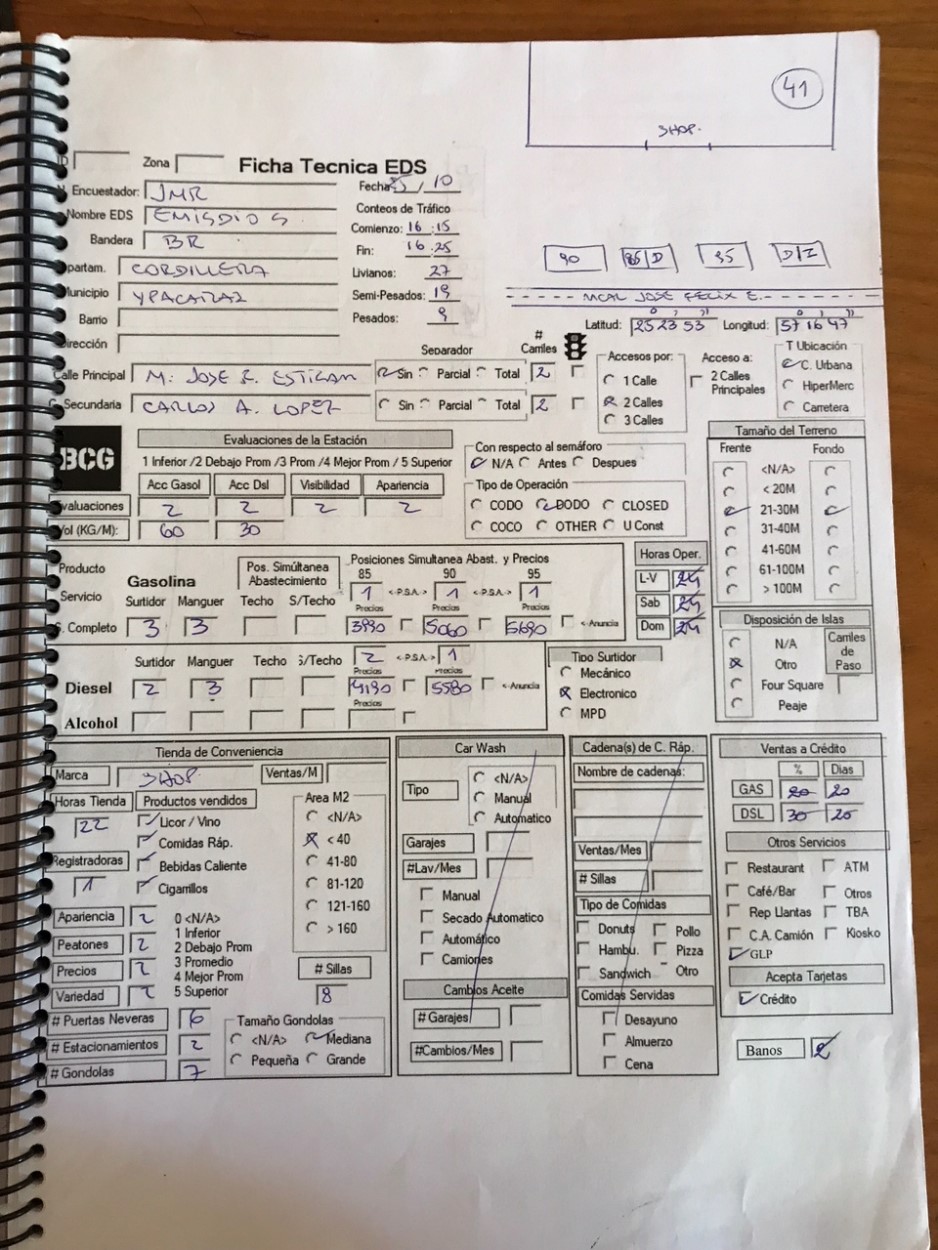 41
SHOP.
ID Zona Ficha Tecnica EDS
Encuestador: JMR Fecha 25/10
Nombre EDS EMISDIO S Conteos de Tráfico
Bandera BR Comienzo: 16:15
Fin: 16:25
90 85/D 95 D/I
partam. CORDILLERA Livianos: 27
Municipio YPACARAI Semi-Pesados: 19
MCAL JOSE FELIX E.
Barrio Pesados: 9
Latitud: 25 23 53 Longitud: 57 16 47
Dirección
Separador # Carriles
Calle Principal M. JOSE F. ESTIGAR Sin Parcial Total 2
Secundaria CARLOS A. LOPEZ Sin Parcial Total 2
Accesos por:
1 Calle
2 Calles
3 Calles
Acceso a:
2 Calles Principales
T Ubicación
C. Urbana
HiperMerc
Carretera
BCG
Evaluaciones de la Estación
1 Inferior /2 Debajo Prom /3 Prom /4 Mejor Prom / 5 Superior
Acc Gasol Acc Dsl Visibilidad Apariencia
valuaciones 2 2 2 2
Vol (KG/M): 60 30
Con respecto al semáforo
N/A Antes Despues
Tipo de Operación
CODO DODO CLOSED
COCO OTHER U Const
Tamaño del Terreno
Frente Fondo
<N/A>
< 20M
21-30M
31-40M
41-60M
61-100M
> 100M
Producto Gasolina Pos. Simúltanea Abastecimiento Posiciones Simultanea Abast. y Precios
85 90 95
Servicio Surtidor Manguer Techo S/Techo 1 <-P.S.A.-> 1 <-P.S.A.-> 1
Precios Precios Precios
S. Completo 3 3 3990 5060 5690 <-Anuncia
Horas Oper.
L-V 24
Sab 24
Dom 24
Surtidor Manguer Techo S/Techo 2 <-P.S.A.-> 1
Precios Precios
Diesel 2 3 4190 5580 <-Anuncia
Precios
Alcohol
Tipo Surtidor
Mecánico
Electronico
MPD
Disposición de Islas
N/A
Otro
Four Square
Peaje
Carriles de Paso
Tienda de Conveniencia
Marca SHOP. Ventas/M
Horas Tienda 22
Productos vendidos
Licor / Vino
Comidas Ráp.
Bebidas Caliente
Cigarrillos
Registradoras 1
Area M2
<N/A>
< 40
41-80
81-120
121-160
> 160
Apariencia 2
Peatones 2
Precios 2
Variedad 2
0 <N/A>
1 Inferior
2 Debajo Prom
3 Promedio
4 Mejor Prom
5 Superior
# Sillas
8
# Puertas Neveras 6
# Estacionamientos 2
# Gondolas 7
Tamaño Gondolas
<N/A> Mediana
Pequeña Grande
Car Wash
Tipo
<N/A>
Manual
Automatico
Garajes
#Lav/Mes
Manual
Secado Automatico
Automático
Camiones
Cambios Aceite
# Garajes
#Cambios/Mes
Cadena(s) de C. Ráp.
Nombre de cadenas:
Ventas/Mes
# Sillas
Tipo de Comidas
Donuts Pollo
Hambu. Pizza
Sandwich Otro
Comidas Servidas
Desayuno
Almuerzo
Cena
Ventas a Crédito
% Dias
GAS 20 20
DSL 30 20
Otros Servicios
Restaurant ATM
Café/Bar Otros
Rep Llantas TBA
C.A. Camión Kiosko
GLP
Acepta Tarjetas
Crédito
Banos 2